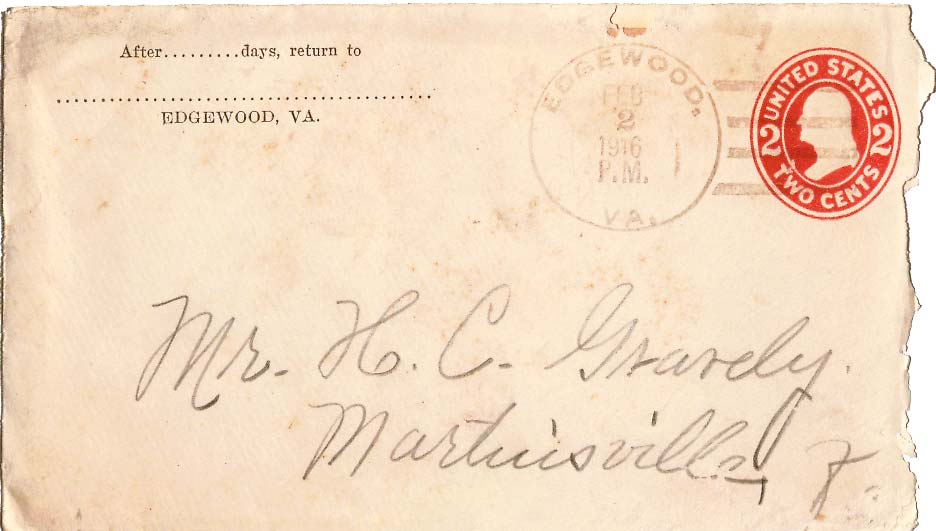 After.........days, return to
...........................................
EDGEWOOD, VA.
EDGEWOOD,
FEB
2
1916
P.M.
VA.
UNITED STATES
2 2
TWO CENTS
Mr. H. C. Gravely.
Martinsville,